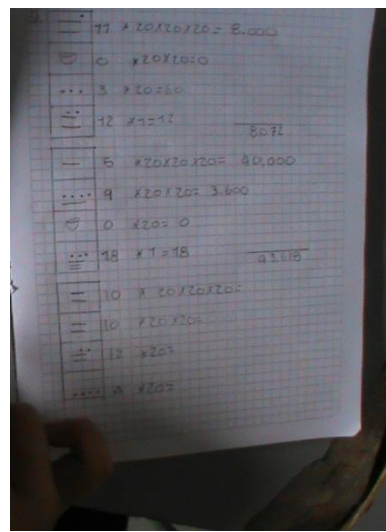 11 x20x20x20= 8.000
0 x20x20=0
3 x20=60
12 x1=12
8072
5 x20x20x20= 40,000
9 x20x20= 3.600
0 x20= 0
18 x1=18
43.618
10 x 20x20x20=
10 x20x20=
12 x20=
4 x20=